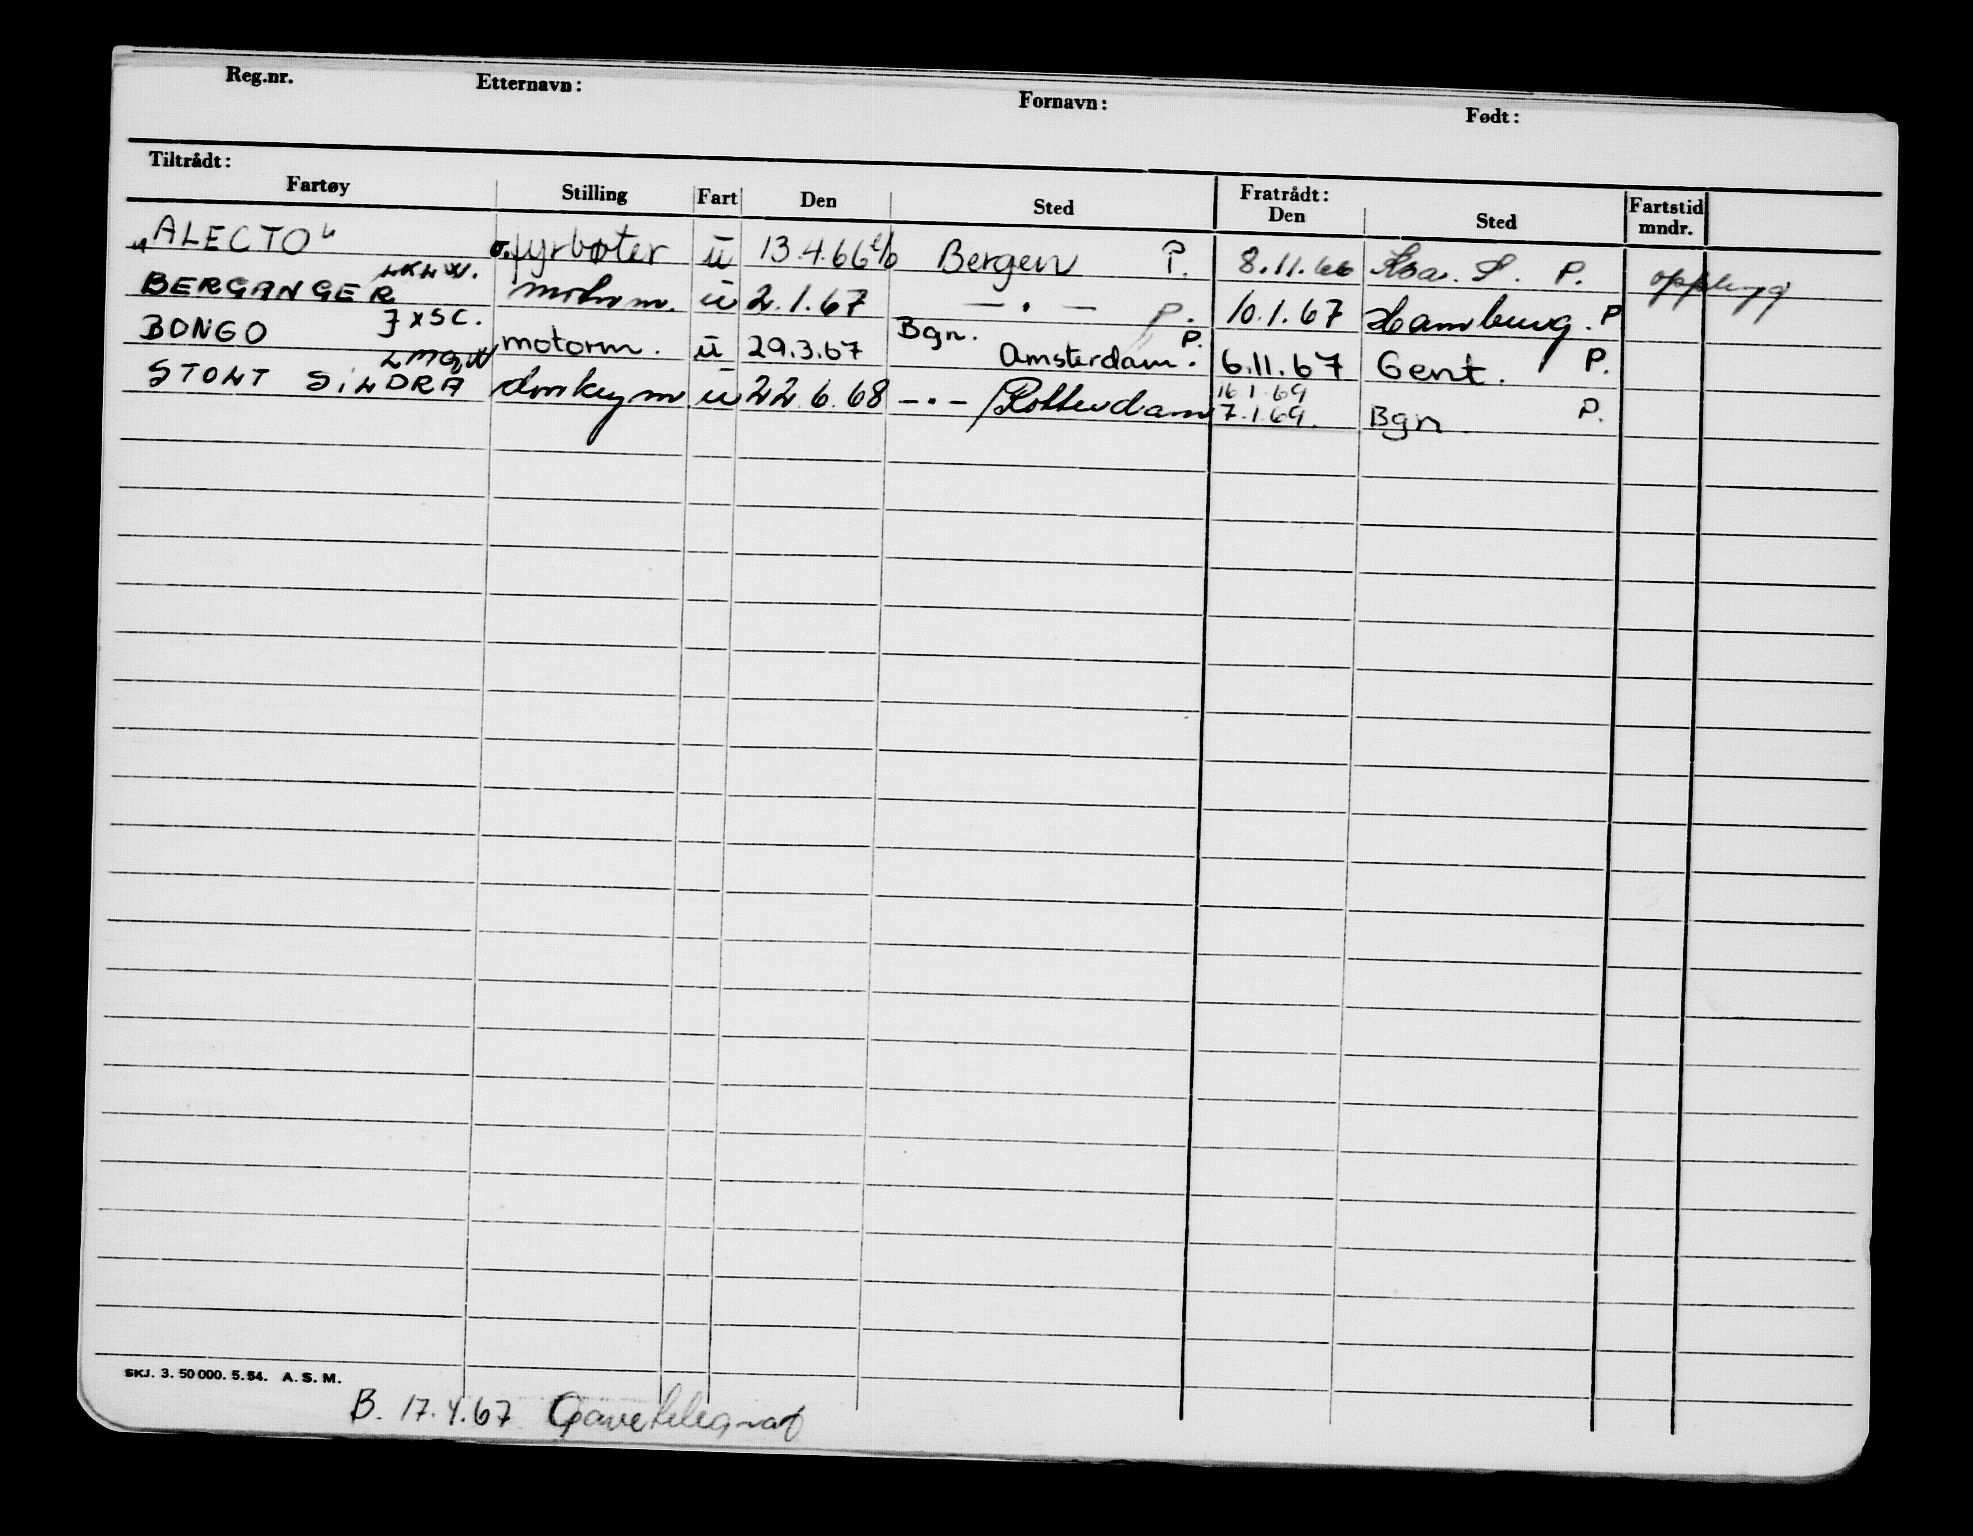 Reg.nr. Etternavn: Fornavn: Født:
Tiltrådt: Fratrådt:
Fartøy Stilling Fart Den Sted Den Sted Fartstid mndr.
"ALECTO" fyrbøter ū 13.4.66 Bergen P. 8.11.66 P. opplagg
LKLW.
BERGANGER motorm. ū 2.1.67 — . — P. 10.1.67 Hamburg. P
JXSC.
BONGO motorm. ū 29.3.67 Bgn. Amsterdam. P. 6.11.67 Gent. P.
LMQW
STOLT SINDRA donkeym. ū 22.6.68 — . — / Rotterdam 16.1.69
7.1.69. Bgn P.
SKJ. 3. 50 000. 5.54. A. S. M.
B. 17.4.67 Gavetelegraf